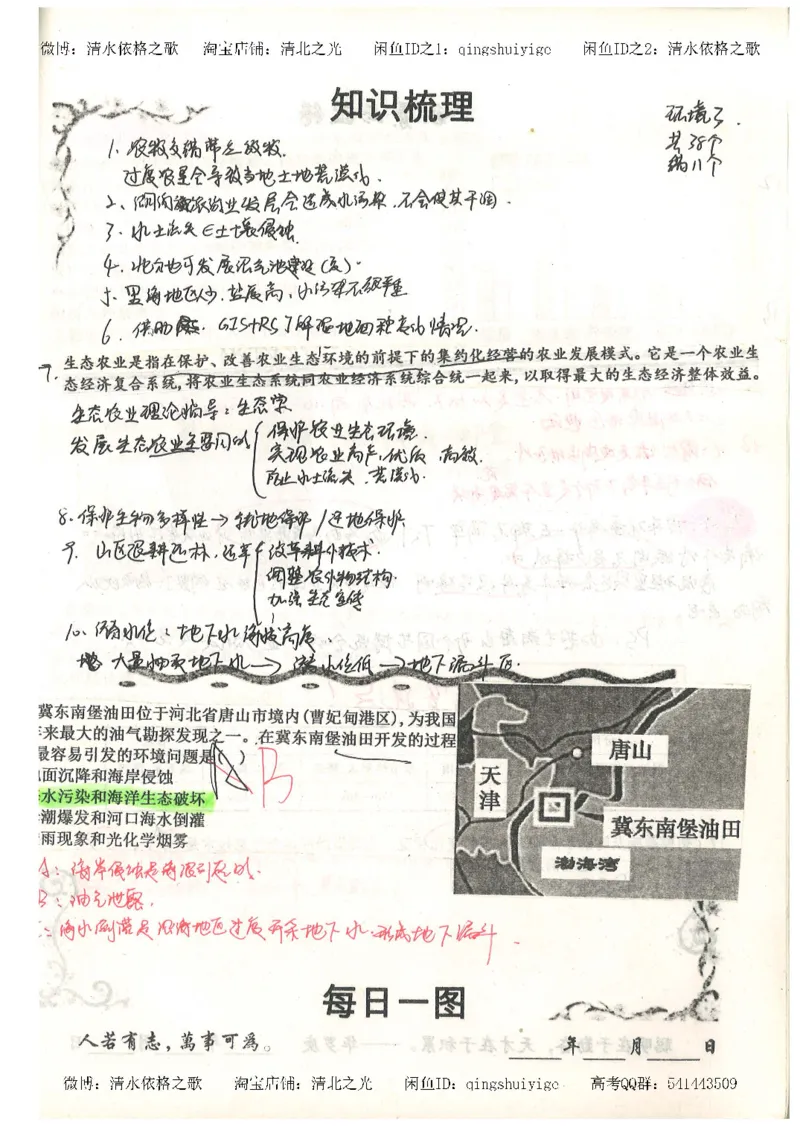 微博：清水依格之歌 淘宝店铺：清北之光 闲鱼ID之1：qingshuiyige 闲鱼ID之2：清水依格之歌
知识梳理
环境3.
共38个
编11个
1. 农牧交错带过度放牧.
过度农垦会导致当地土地荒漠化.
业发展会造成水污染.不会使其干涸.
3. 水土流失∈土壤侵蚀.
4. 北方也可发展沼气池建设(是).
5. 里海地区人少.盐度高，水污染不很严重
6. 借助 GIS+RS了解湿地面积变化情况.
7. 生态农业是指在保护、改善农业生态环境的前提下的集约化经营的农业发展模式。它是一个农业生
态经济复合系统，将农业生态系统同农业经济系统综合统一起来，以取得最大的生态经济整体效益。
生态农业理论指导：生态学
发展生态农业主要可以
保护农业生态环境.
实现农业高产，优质 高效.
防止水土流失，荒漠化.
8. 保护生物多样性→就地保护/迁地保护.
9. 山区退耕还林，还草
改革耕作技术.
调整农作物结构.
加强生态宣传
10. 潜水位：地下水海拔高度.
大量抽取地下水→潜水位低→地下漏斗区.
冀东南堡油田位于河北省唐山市境内(曹妃甸港区)，为我国
年来最大的油气勘探发现之一。在冀东南堡油田开发的过程
最容易引发的环境问题是( )
B
面沉降和海岸侵蚀
水污染和海洋生态破坏
潮爆发和河口海水倒灌
雨现象和光化学烟雾
唐山
天津
冀东南堡油田
渤海湾
A：海岸侵蚀是
B：油气泄露.
C：海水倒灌是沿海地区过度开采地下水.形成地下漏斗.
每日一图
人若有志，萬事可為。 年 月 日
微博：清水依格之歌 淘宝店铺：清北之光 闲鱼ID：qingshuiyige 高考QQ群：541443509